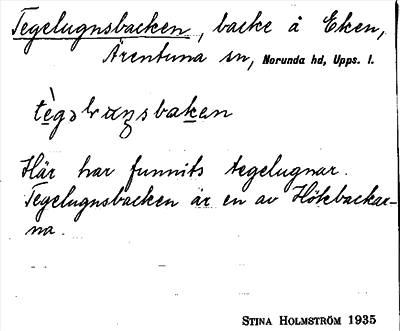 Tegelugnsbacken, backe å Eken,
Ärentuna sn, Norunda hd, Upps. l.
tè̱gəlɷŋsbaken
Här har funnits tegelugnar.
Tegelugnsbacken är en av Hökbackar-
na.
STINA HOLMSTRÖM 1935